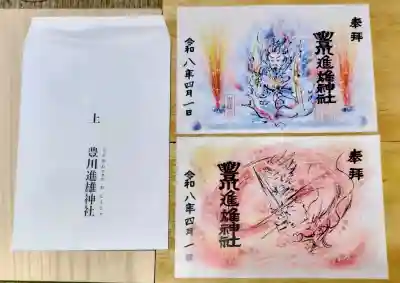 上
豊川進雄神社
奉拝
豊川進雄神社
令和八年四月一日
奉拝
豊川進雄神社
令和八年四月一